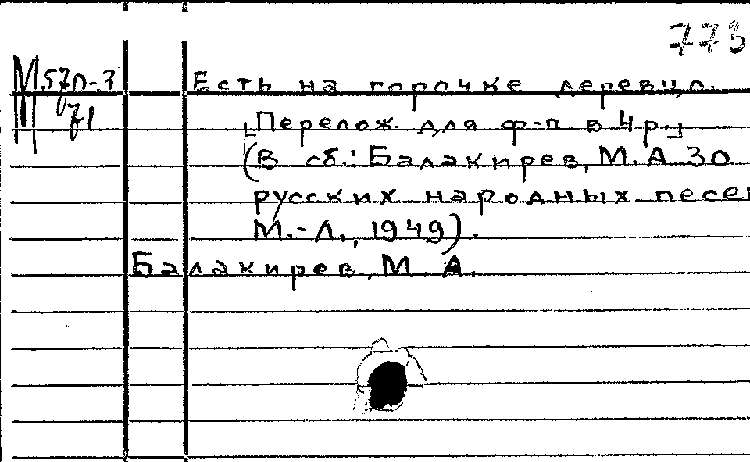 773
М57п-7
71
Есть на горочке деревцо.
[Перелож. для ф-п в 4 р.]
(В сб.: Балакирев, М.А. 30
русских народных песен
М.-Л., 1949).
Балакирев, М. А.